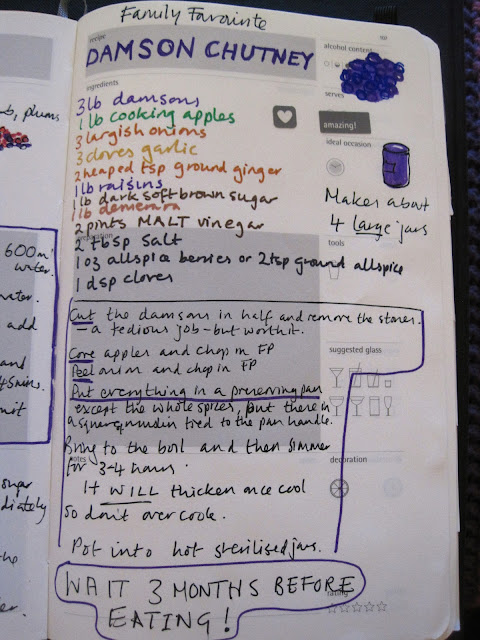 Family Favourite
recipe
DAMSON CHUTNEY
alcohol content
ingredients
3lb damsons
1lb cooking apples
3 largish onions
3 cloves garlic
2 heaped tsp ground ginger
1lb raisins
1lb dark soft brown sugar
1lb demerara
2 pints MALT vinegar
2 tbsp salt
1 oz allspice berries or 2tsp ground allspice
1 dsp cloves
serves
amazing!
ideal occasion
Makes about
4 large jars
tools
Cut the damsons in half and remove the stones.
– a tedious job – but worth it.
Core apples and chop in FP
Peel onion and chop in FP
Put everything in a preserving pan
except the whole spices, put these in
a square of muslin tied to the pan handle.
Bring to the boil and then simmer
for 3-4 hours.
It WILL thicken once cool
so don't over cook.
Pot into hot sterilised jars.
suggested glass
notes
decoration
WAIT 3 MONTHS BEFORE
EATING!
rating
plums
600m
water.
water.
add
and
45mins.
sugar
the